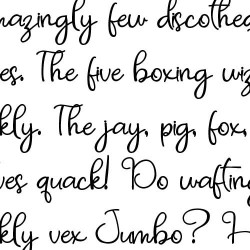 mazingly few discothe
es. The five boxing wiz
kly. The jay, pig, fox,
ves quack! Do wafting
kly vex Jumbo? H